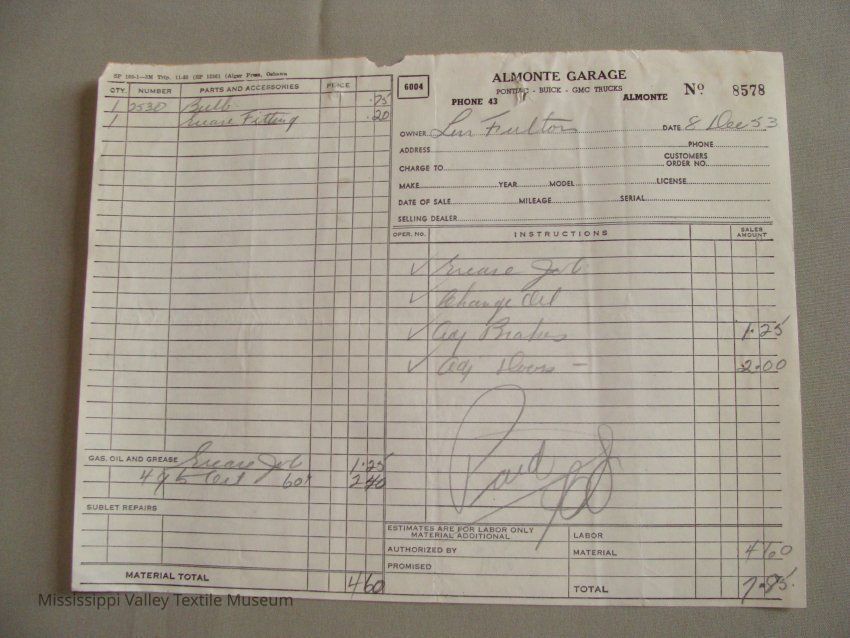 SP 100-1—3M Trip. 11-52 (SP 1256) (Alger Press, Oshawa
QTY. NUMBER PARTS AND ACCESSORIES PRICE
1 2530 Bulb .75
1 Grease Fitting .20
GAS, OIL AND GREASE Grease Job 1.25
4 qts Oil 60¢ 2.40
SUBLET REPAIRS
MATERIAL TOTAL 4.60
6004
ALMONTE GARAGE
PONTIAC - BUICK - GMC TRUCKS
PHONE 43 ALMONTE
No 8578
OWNER Len Fulton DATE 8 Dec 53
ADDRESS PHONE
CHARGE TO CUSTOMERS ORDER NO.
MAKE YEAR MODEL LICENSE
DATE OF SALE MILEAGE SERIAL
SELLING DEALER
OPER. NO. INSTRUCTIONS SALES AMOUNT
✓ Grease Job
✓ Change Oil
✓ Adj Brakes 1.25
✓ Adj Doors — 2.00
Paid
ESTIMATES ARE FOR LABOR ONLY
MATERIAL ADDITIONAL LABOR
AUTHORIZED BY MATERIAL 4.60
PROMISED
TOTAL 7.85
Mississippi Valley Textile Museum